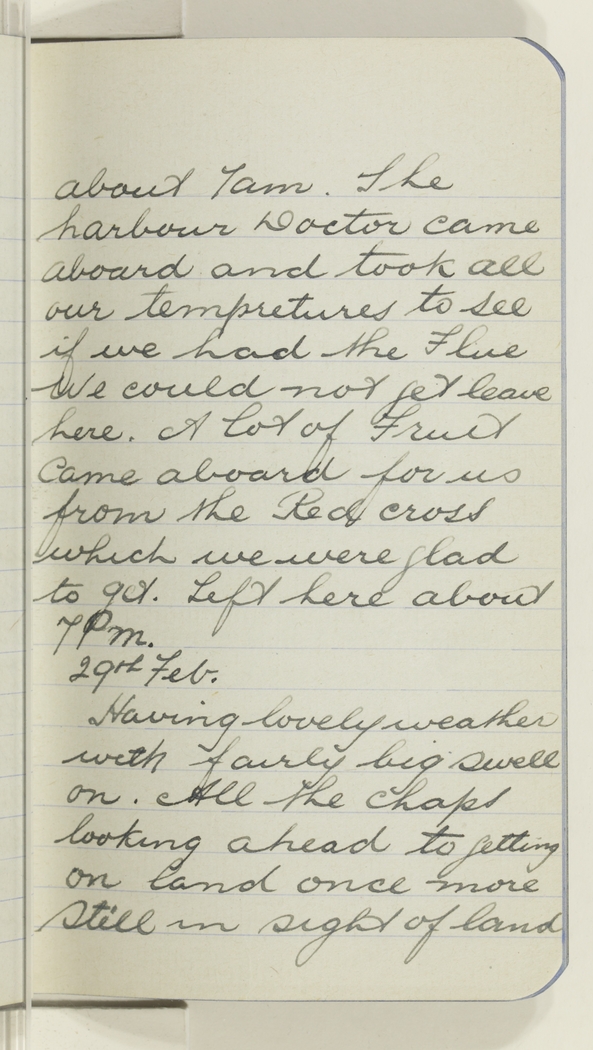 about 7am. The
harbour Doctor came
aboard and took all
our tempretures to see
if we had the Flue
We could not get leave
here. A lot of Fruit
Came aboard for us
from the Red cross
which we were glad
to get. Left here about
7Pm.
29th Feb.
Having lovely weather
with fairly big swell
on. All the chaps
looking ahead to getting
on land once more
Still in sight of land